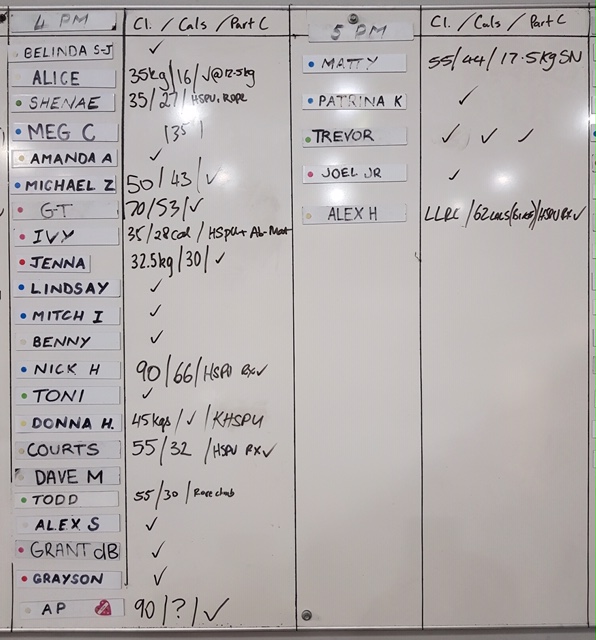 4 PM Cl. / Cals / Part C
BELINDA S-J ✓
ALICE 35kg/16/✓@12.5kg
SHENAE 35/27/HSPU, ROPE
MEG C /35/
AMANDA A ✓
MICHAEL Z 50/43/✓
GT 70/53/✓
IVY 35/28Cal/HSPU+ Ab-Mat
JENNA 32.5kg/30/✓
LINDSAY ✓
MITCH I ✓
BENNY ✓
NICK H 90/66/HSPU RX✓
TONI ✓
DONNA H. 45kgs/✓/KHSPU
COURTS 55/32/HSPU RX✓
DAVE M
TODD 55/30/Rope climb
ALEX S ✓
GRANT dB ✓
GRAYSON ✓
AP 90/?/✓
5 PM Cl. / Cals / Part C
MATTY 55/44/17.5kg SN
PATRINA K ✓
TREVOR ✓ ✓ ✓
JOEL JR ✓
ALEX H /62cals/HSPU RX✓